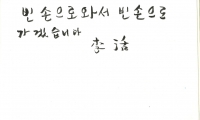 빈손으로와서 빈손으로
가겠습니다
李活